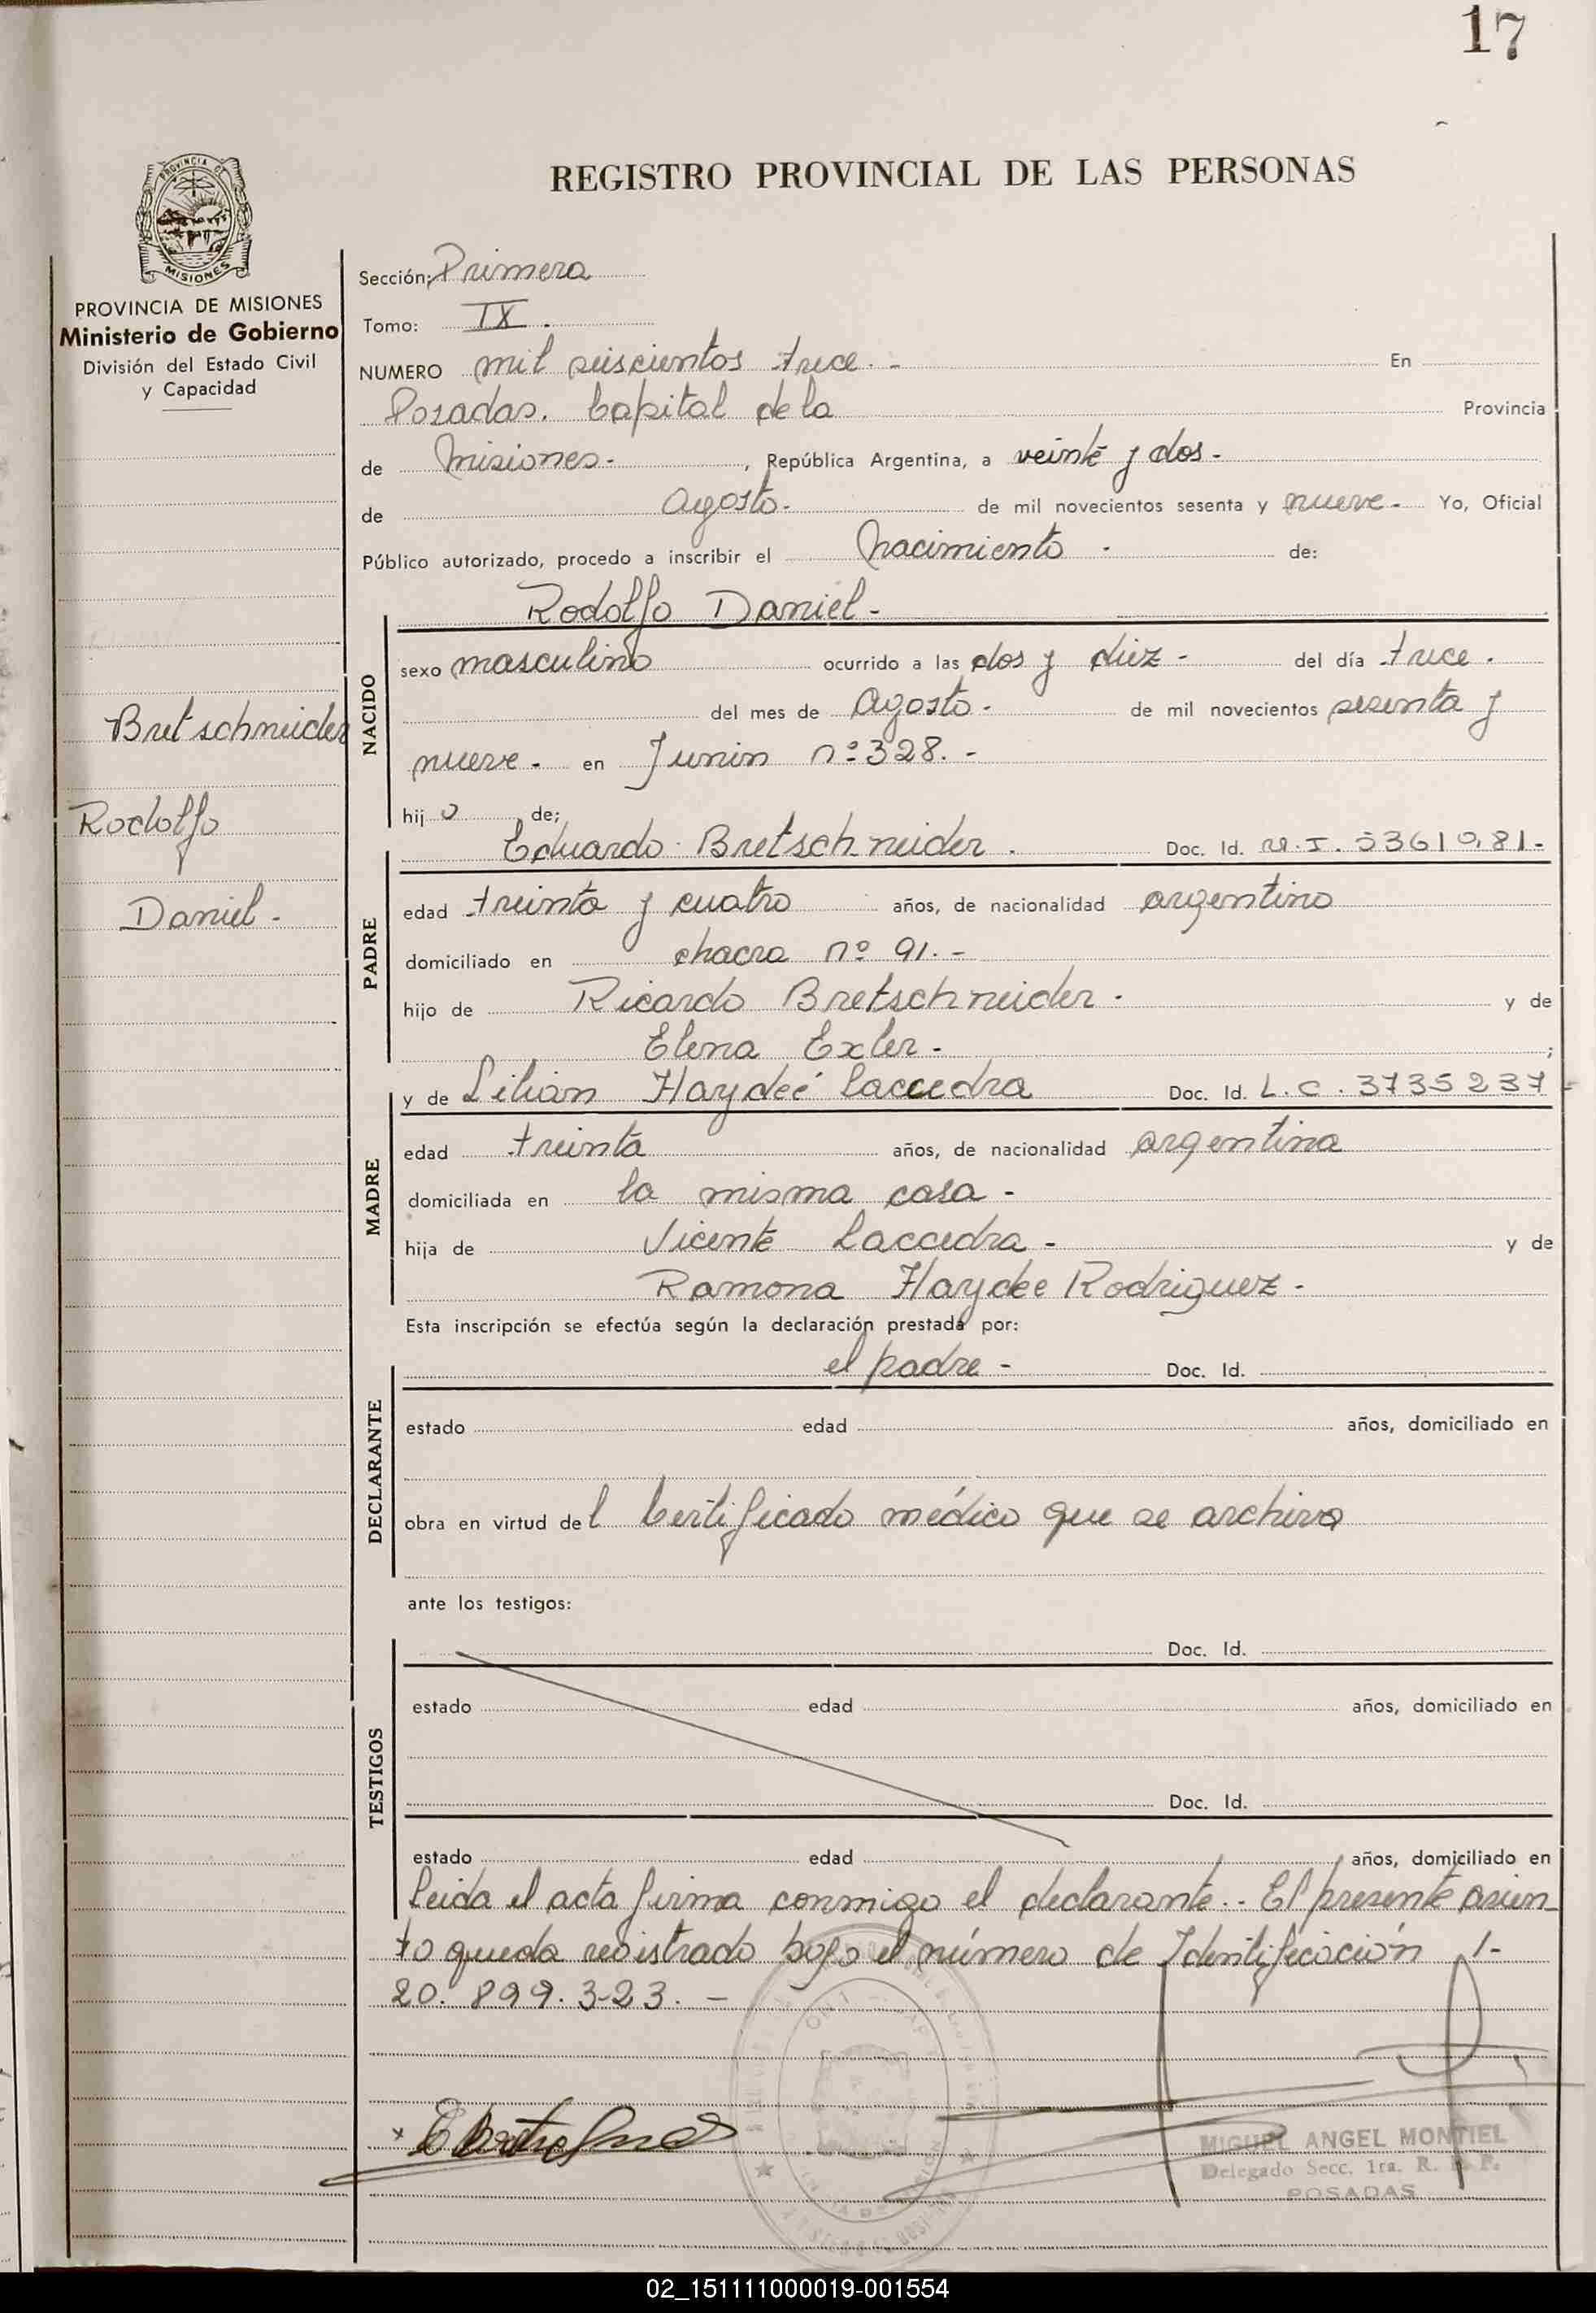 17
REGISTRO PROVINCIAL DE LAS PERSONAS
PROVINCIA DE MISIONES
Ministerio de Gobierno
División del Estado Civil
y Capacidad
Bretschneider
Rodolfo
Daniel -
Sección: Primera
Tomo: IX.
NUMERO mil seiscientos trece. - En
Posadas. Capital de la Provincia
de Misiones- , República Argentina, a veinte y dos-
de Agosto- de mil novecientos sesenta y nueve- Yo, Oficial
Público autorizado, procedo a inscribir el nacimiento - de:
NACIDO
Rodolfo Daniel-
sexo masculino ocurrido a las dos y diez - del día trece.
del mes de Agosto- de mil novecientos sesenta y
nueve- en Junin nº 328. -
hij o de;
PADRE
Eduardo Bretschneider. Doc. Id.
edad treinta y cuatro años, de nacionalidad argentino
domiciliado en chacra nº 91. -
hijo de Ricardo Bretschneider- y de
Elena Exler- ;
MADRE
y de Lilian Haydeé Laccedra Doc. Id. L.C. 3735237-
edad treinta años, de nacionalidad argentina
domiciliada en la misma casa -
hija de Vicente Laccedra - y de
Ramona Haydee Rodriguez-
Esta inscripción se efectúa según la declaración prestada por:
DECLARANTE
el padre - Doc. Id.
estado edad años, domiciliado en
obra en virtud del Certificado médico que se archiva
ante los testigos:
TESTIGOS
Doc. Id.
estado edad años, domiciliado en
Doc. Id.
estado edad años, domiciliado en
Leida el acta firma conmigo el declarante.- El presente asien
to queda registrado bajo el número de Identificación 1-
20.899.323. -
MIGUEL ANGEL MONTIEL
Delegado Secc. 1ra. R. P. P.
POSADAS
02_151111000019-001554